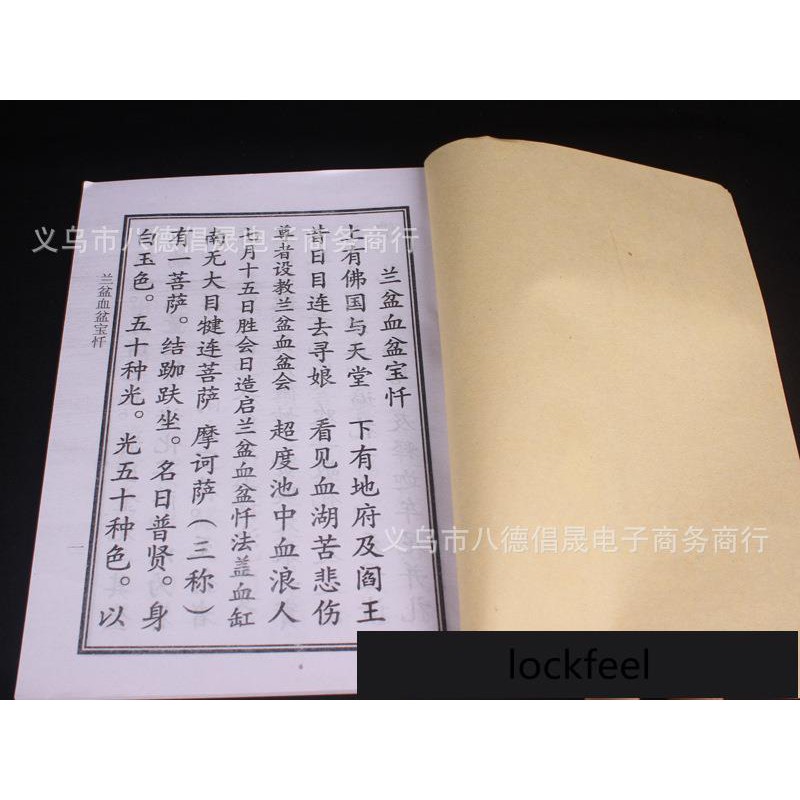 兰盆血盆宝忏
上有佛国与天堂 下有地府及阎王
昔日目连去寻娘 看见血湖苦悲伤
尊者设教兰盆血盆会 超度池中血浪人
七月十五日胜会日造启兰盆血盆忏法盖血缸
南无大目犍连菩萨 摩诃萨（三称）
有一菩萨。结跏趺坐。名曰普贤。身
白玉色。五十种光。光五十种色。以
兰盆血盆宝忏
一
义乌市八德倡晟电子商务商行
义乌市八德倡晟电子商务商行
lockfeel